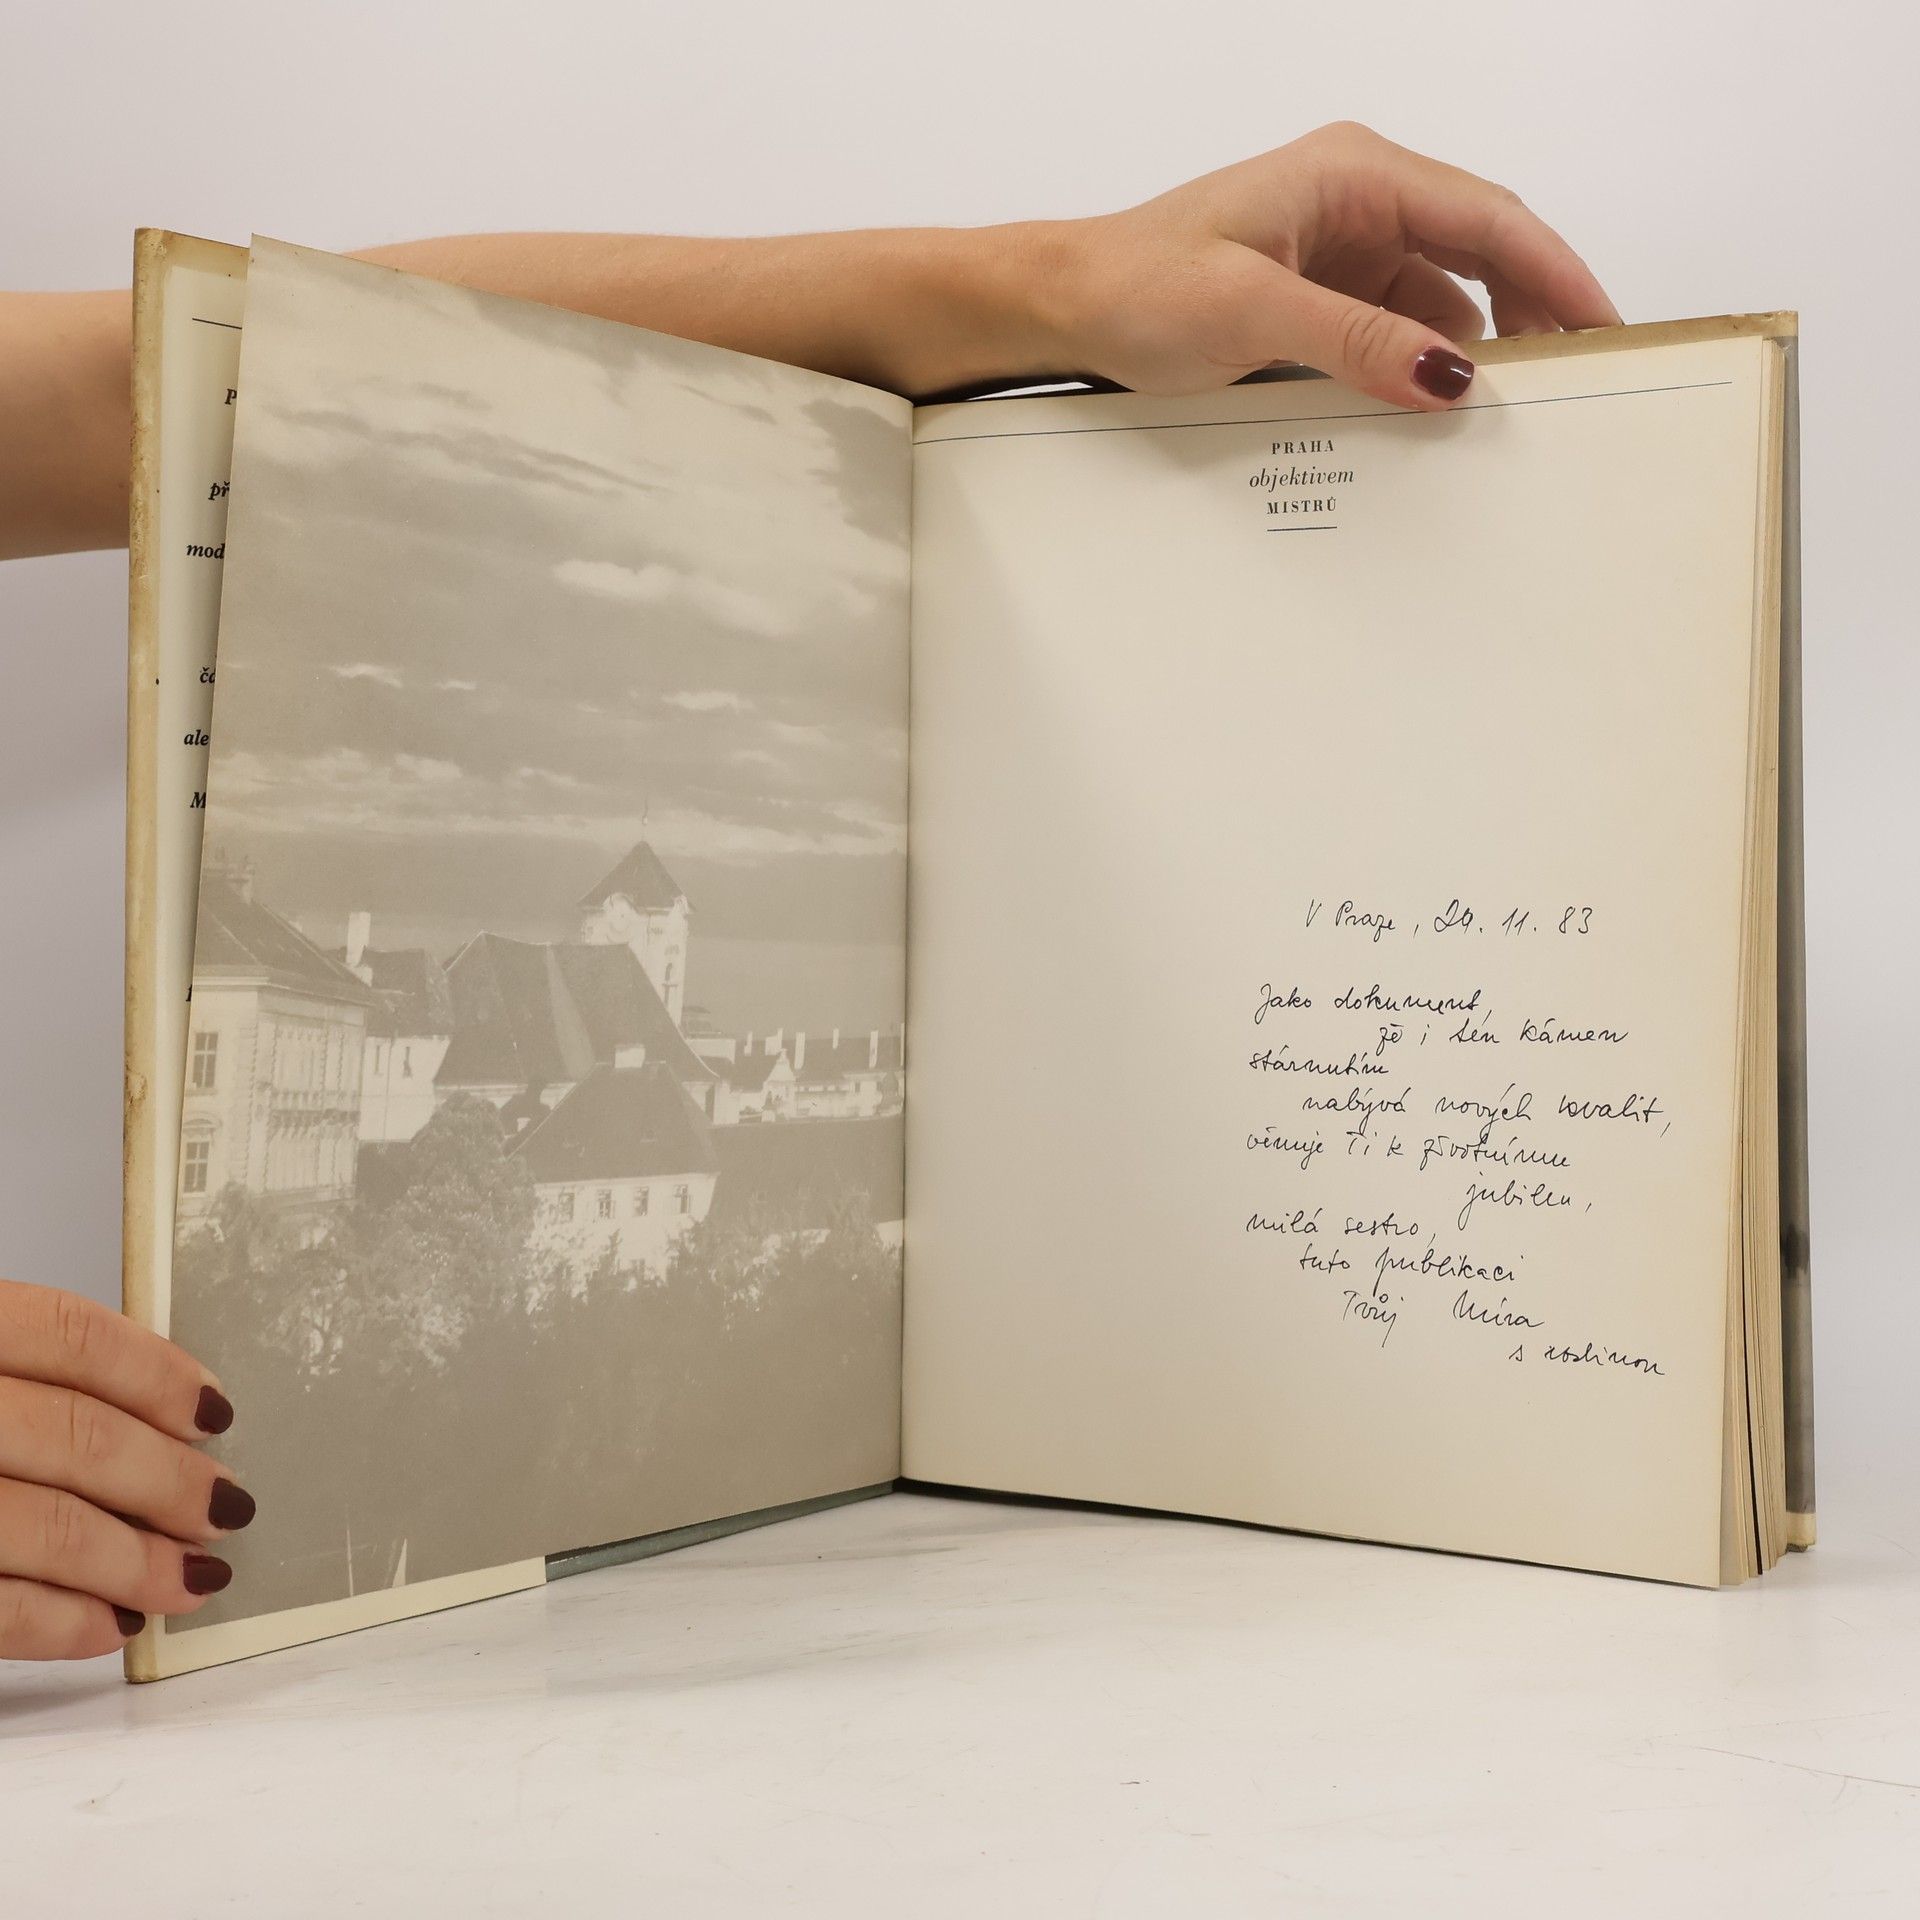 P
př
mod
ale
M
PRAHA
objektivem
MISTRŮ
V Praze, 11. 83
Jako dokument,
že i ten kámen
stárnutím
nabývá nových kvalit,
věnuje Ti k životnímu
jubileu,
milá sestro,
tuto publikaci
Tvůj Míra
s rodinou